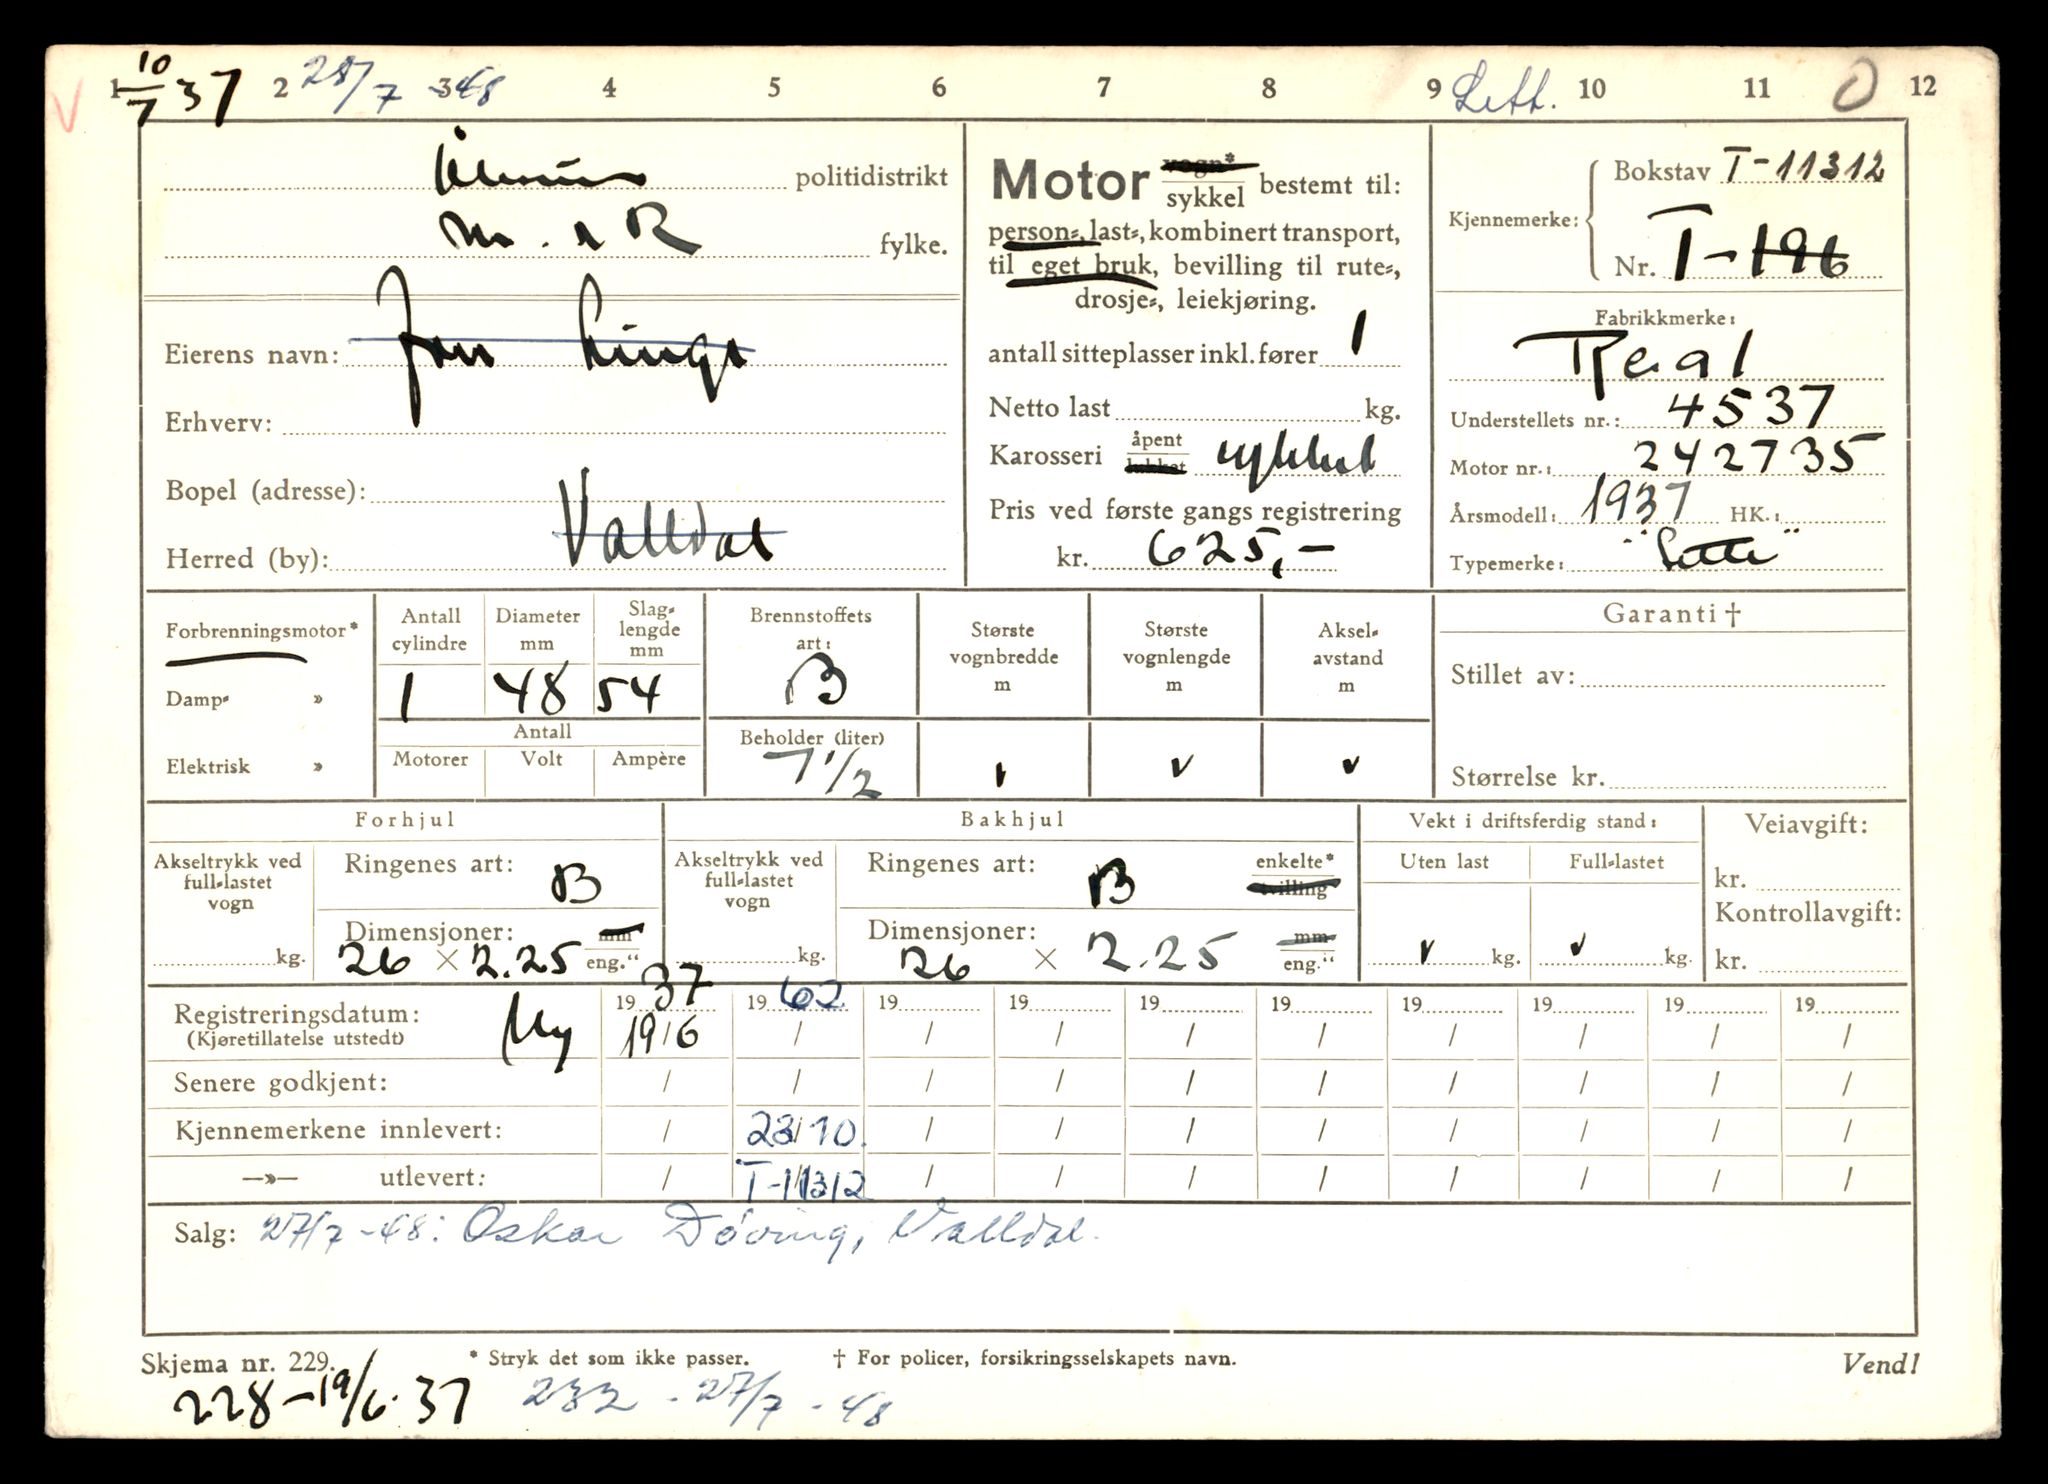 1 10/7 37 2 28/7 3-48 4 5 6 7 8 9 Lett. 10 11 0 12
V
politidistrikt
M. & R fylke.
Eierens navn: Jon Linge
Erhverv:
Bopel (adresse):
Herred (by): Valldal
Motor vogn* sykkel bestemt til:
person-, last-, kombinert transport,
til eget bruk, bevilling til rute-,
drosje-, leiekjøring.
antall sitteplasser inkl. fører 1
Netto last kg.
Karosseri åpent lukket sykkel
Pris ved første gangs registrering
kr. 625,-
Kjennemerke: Bokstav T-11312
Nr. T-196
Fabrikkmerke:
Real
Understellets nr.: 4537
Motor nr.: 242735
Årsmodell: 1937 HK.:
Typemerke: "Lette"
Forbrenningsmotor*
Damp- »
Elektrisk »
Antall cylindre 1
Diameter mm 48
Slaglengde mm 54
Antall
Motorer Volt Ampère
Brennstoffets art: B
Beholder (liter) 7 1/2
Største vognbredde m
Største vognlengde m
Aksel-avstand m
Garanti †
Stillet av:
Størrelse kr.
Forhjul
Akseltrykk ved full-lastet vogn
kg.
Ringenes art: B
Dimensjoner: mm
26 × 2.25 eng."
Bakhjul
Akseltrykk ved full-lastet vogn
kg.
Ringenes art: B enkelte* tvilling
Dimensjoner: mm
26 × 2.25 eng."
Vekt i driftsferdig stand:
Uten last Full-lastet
kg. kg.
Veiavgift:
kr.
Kontrollavgift:
kr.
Registreringsdatum: Ny 19 37 19 62 19 19 19 19 19 19 19 19
(Kjøretillatelse utstedt) 19/6 / / / / / / / / /
Senere godkjent: / / / / / / / / / /
Kjennemerkene innlevert: / 23/10. / / / / / / / /
—»— utlevert: / T-11312 / / / / / / / /
Salg: 27/7-48: Oskar Döving, Valldal.
Skjema nr. 229. * Stryk det som ikke passer. † For policer, forsikringsselskapets navn. Vend!
228-19/6.37 232 - 27/7 - 48